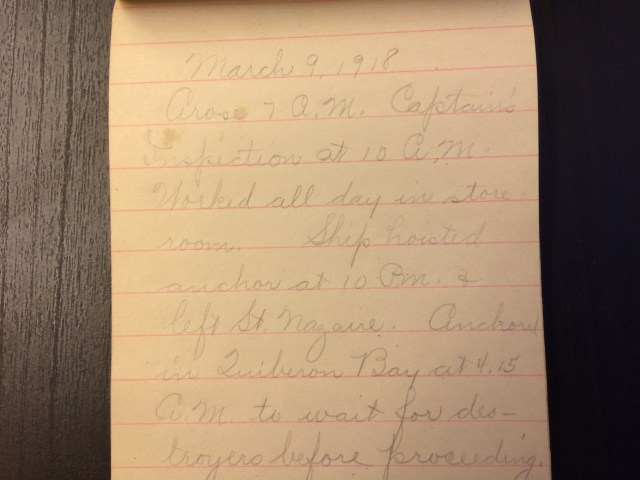 March 9, 1918
Arose 7 A.M. Captain's
Inspection at 10 A.M.
Worked all day in store
room. Ship hoisted
anchor at 10 P.M. &
left St. Nazaire. Anchored
in Quiberon Bay at 4.15
A.M. to wait for des-
troyers before proceeding.